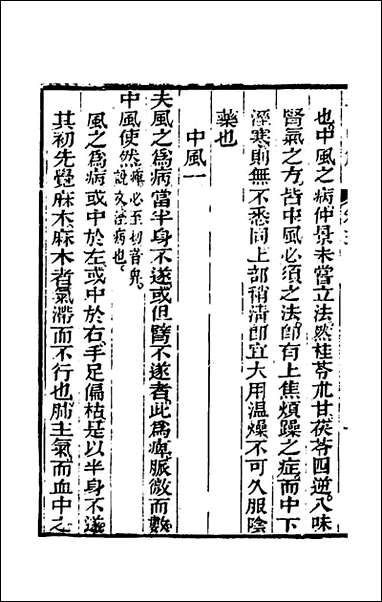 也。中風之病仲景未嘗立法然桂苓朮甘茯苓四逆。八味
腎氣之方。皆中風必須之法。卽有上焦煩躁之症。而中下
溼寒則無不悉同上部稍淸卽宜大用温燥不可久服陰
藥也
中風一
夫風之爲病當半身不遂。或但臂不遂者。此爲痺。脈微而數
中風使然 痺必至切音卑。說文溼病也。
風之爲病。或中於左。或中於右。手足偏枯。是以半身不遂
其初先覺麻木。麻木者。氣滯而不行也。肺主氣。而血中之